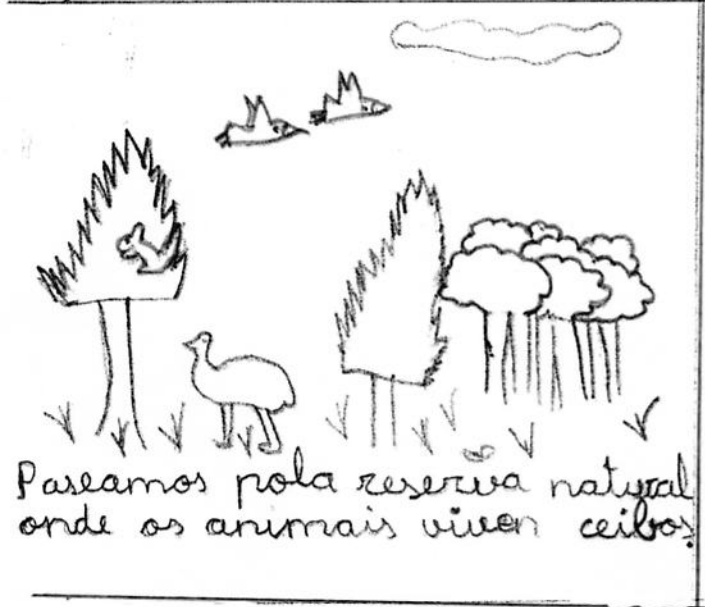 Paseamos pola reserva natural
onde os animais viven ceibos.